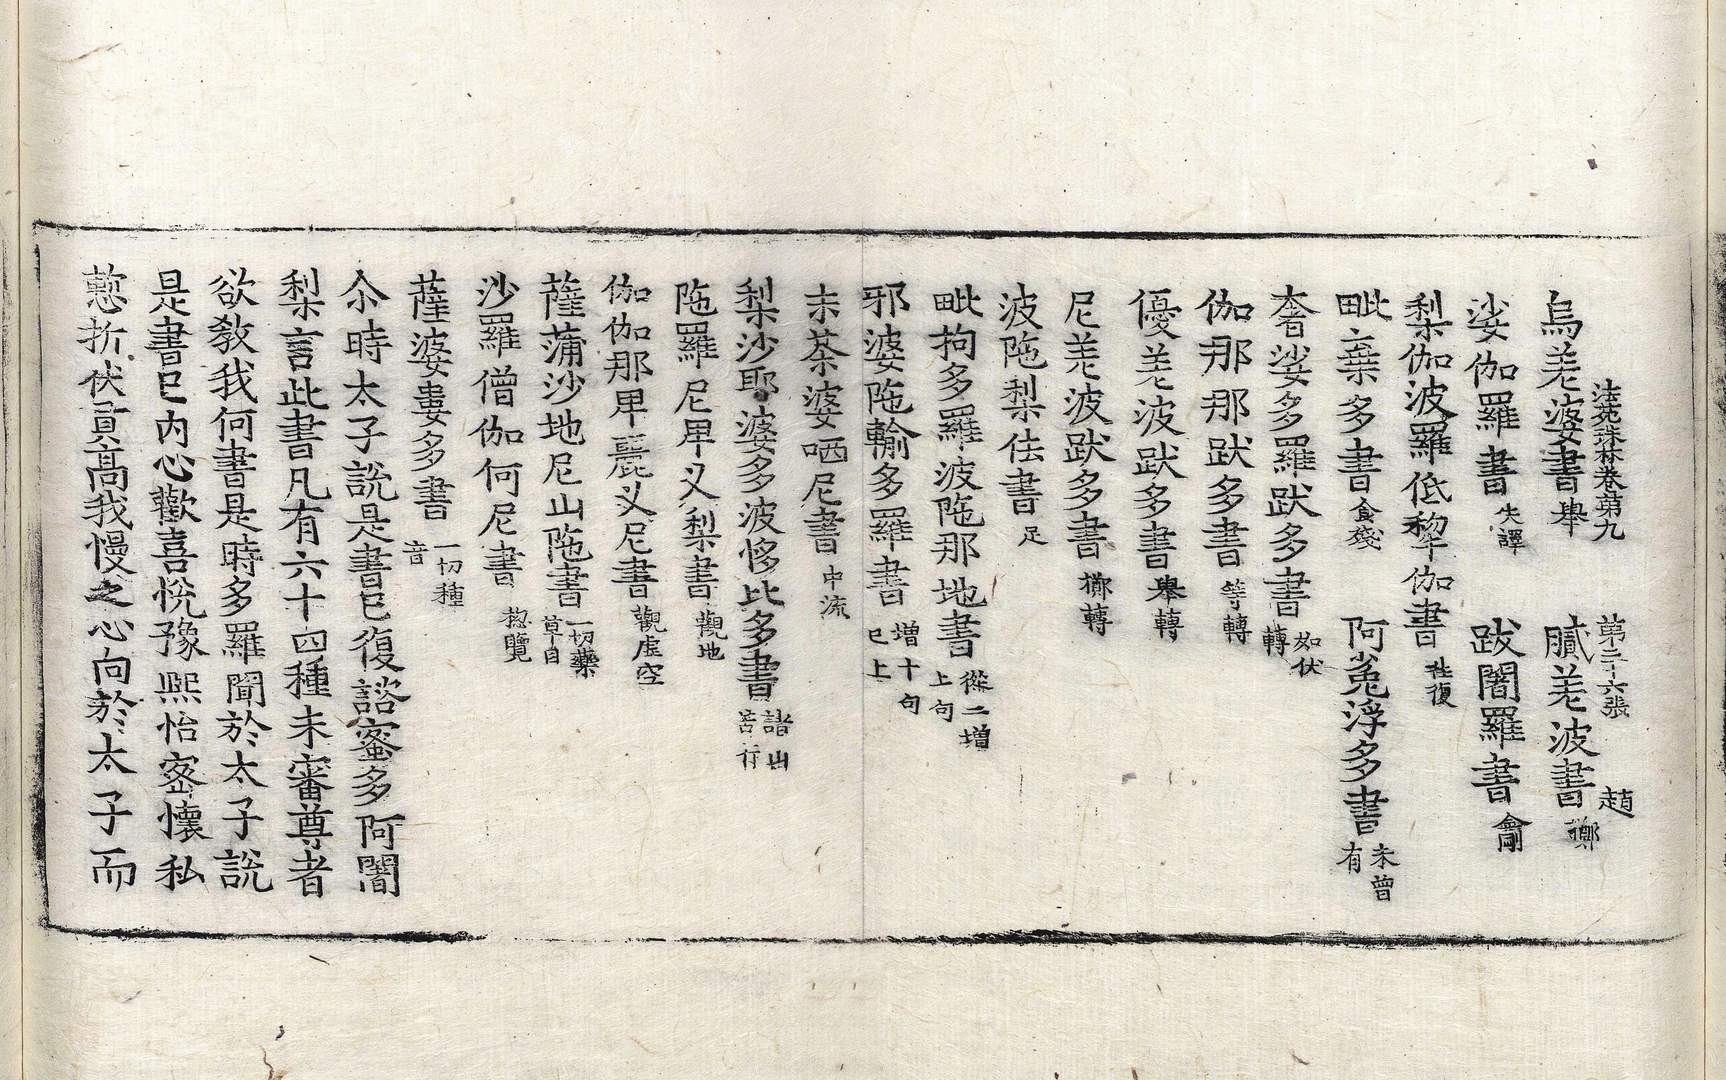 法苑珠林卷第九　第二十六張　趙
烏羌婆書舉　膩羌波書擲
娑伽羅書失譯　跋闍羅書
梨伽波羅低犂伽書往復
毗棄多書食殘　阿㝹浮多書未曾有
奢娑多羅跋多書如伏轉
伽那那跋多書等轉
優羌波跋多書舉轉
尼羌波跋多書擲轉
波陁梨佉書足
毗拘多羅波陁那地書從二增上句
邪婆陁輸多羅書增十句已上
末荼婆哂尼書中流
梨沙耶婆多波恀比多書諸山苦行
陁羅尼卑叉梨書觀地
伽伽那卑麗叉尼書觀虛空
薩蒲沙地尼山陁書一切藥草自
沙羅僧伽何尼書捴覽
薩婆婁多書一切種音
尒時太子說是書已復諮蜜多阿闍
梨言此書凡有六十四種未審尊者
欲教我何書是時多羅聞於太子說
是書已內心歡喜悅豫熙怡密懷私
折伏貢高我慢之心向於太子而